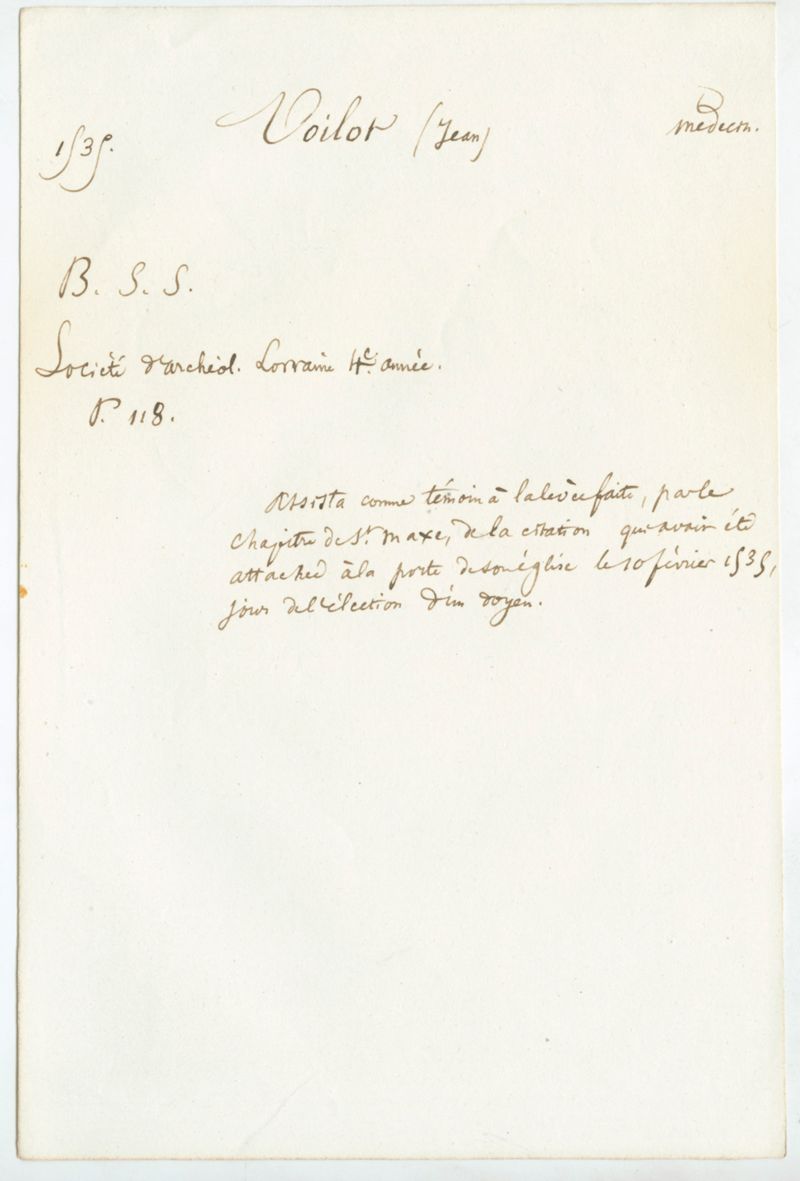 1535. Voilot (Jean) médecin.
B. S. S.
Société d'archéol. Lorraine 4e. année.
P. 118.
Assista comme témoin à la levée faite, par le
chapitre de St. Maxe, de la citation qui avait été
attachée à la porte de son église le 10 février 1535,
jour de l'élection d'un doyen.